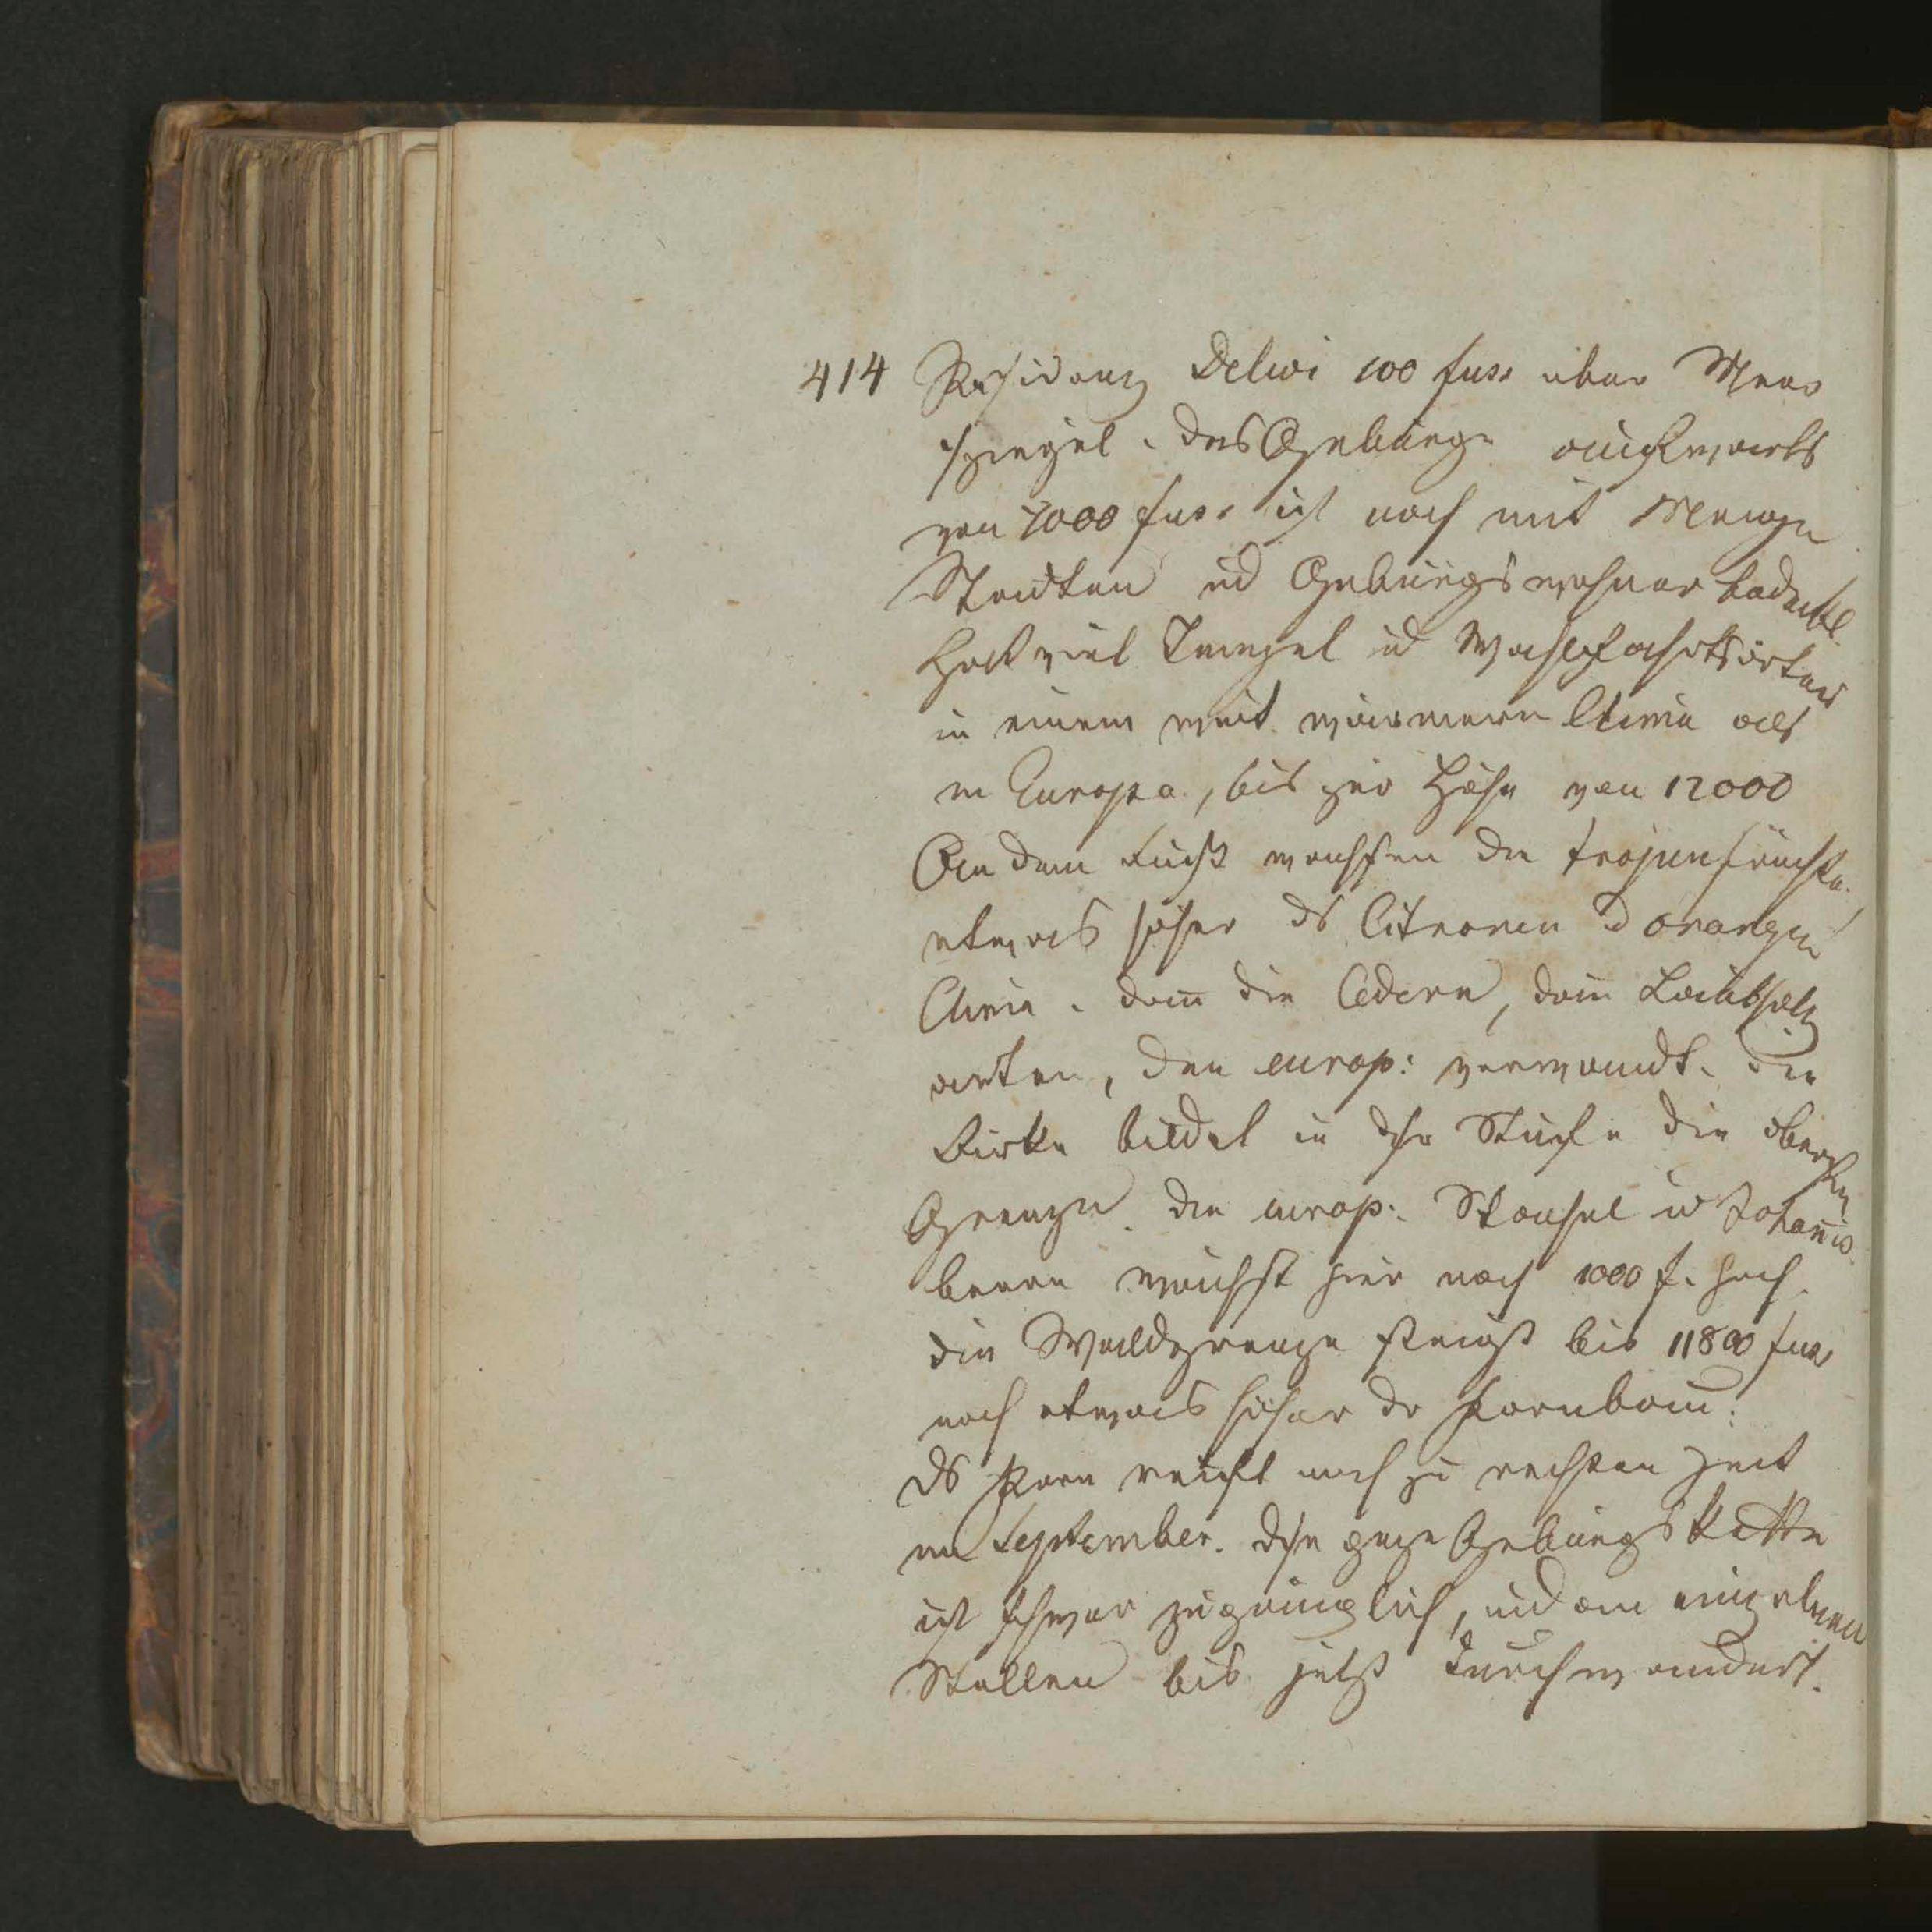 414 Residenz Delwi 100 fuss über Meer
spiegel. das Gebürge aufwärts
von 7000 fuss ist noch mit Menge
Staedten ud Gebürgsbewohner bedeckt
hat viel Tempel ud Wahlfahrtsörter
in einem weit wärmern Clima als
in Europa, bis zur Höhe von 12000
An dem Fuss wachsen die Tropenfrüchte.
etwas höher ds Citronen d orangen
Clima. dann die Cedern, dann Laubholz
arten, den europ: verwandt. die
Birke bildet in dsr Stuffe die obersten
Grenze. die europ: Stachel u Johannis
beere wächst hier noch 1000 f. hoch.
die Waldgrenze steigt bis 11800 fuss
noch etwas höher dr
ds Korn reift noch zu rechten Zeit
im September. dse ganze Gebürgskette
ist schwer zugänglich, und an einzelnen
Stellen bis jetzt durchwandert.